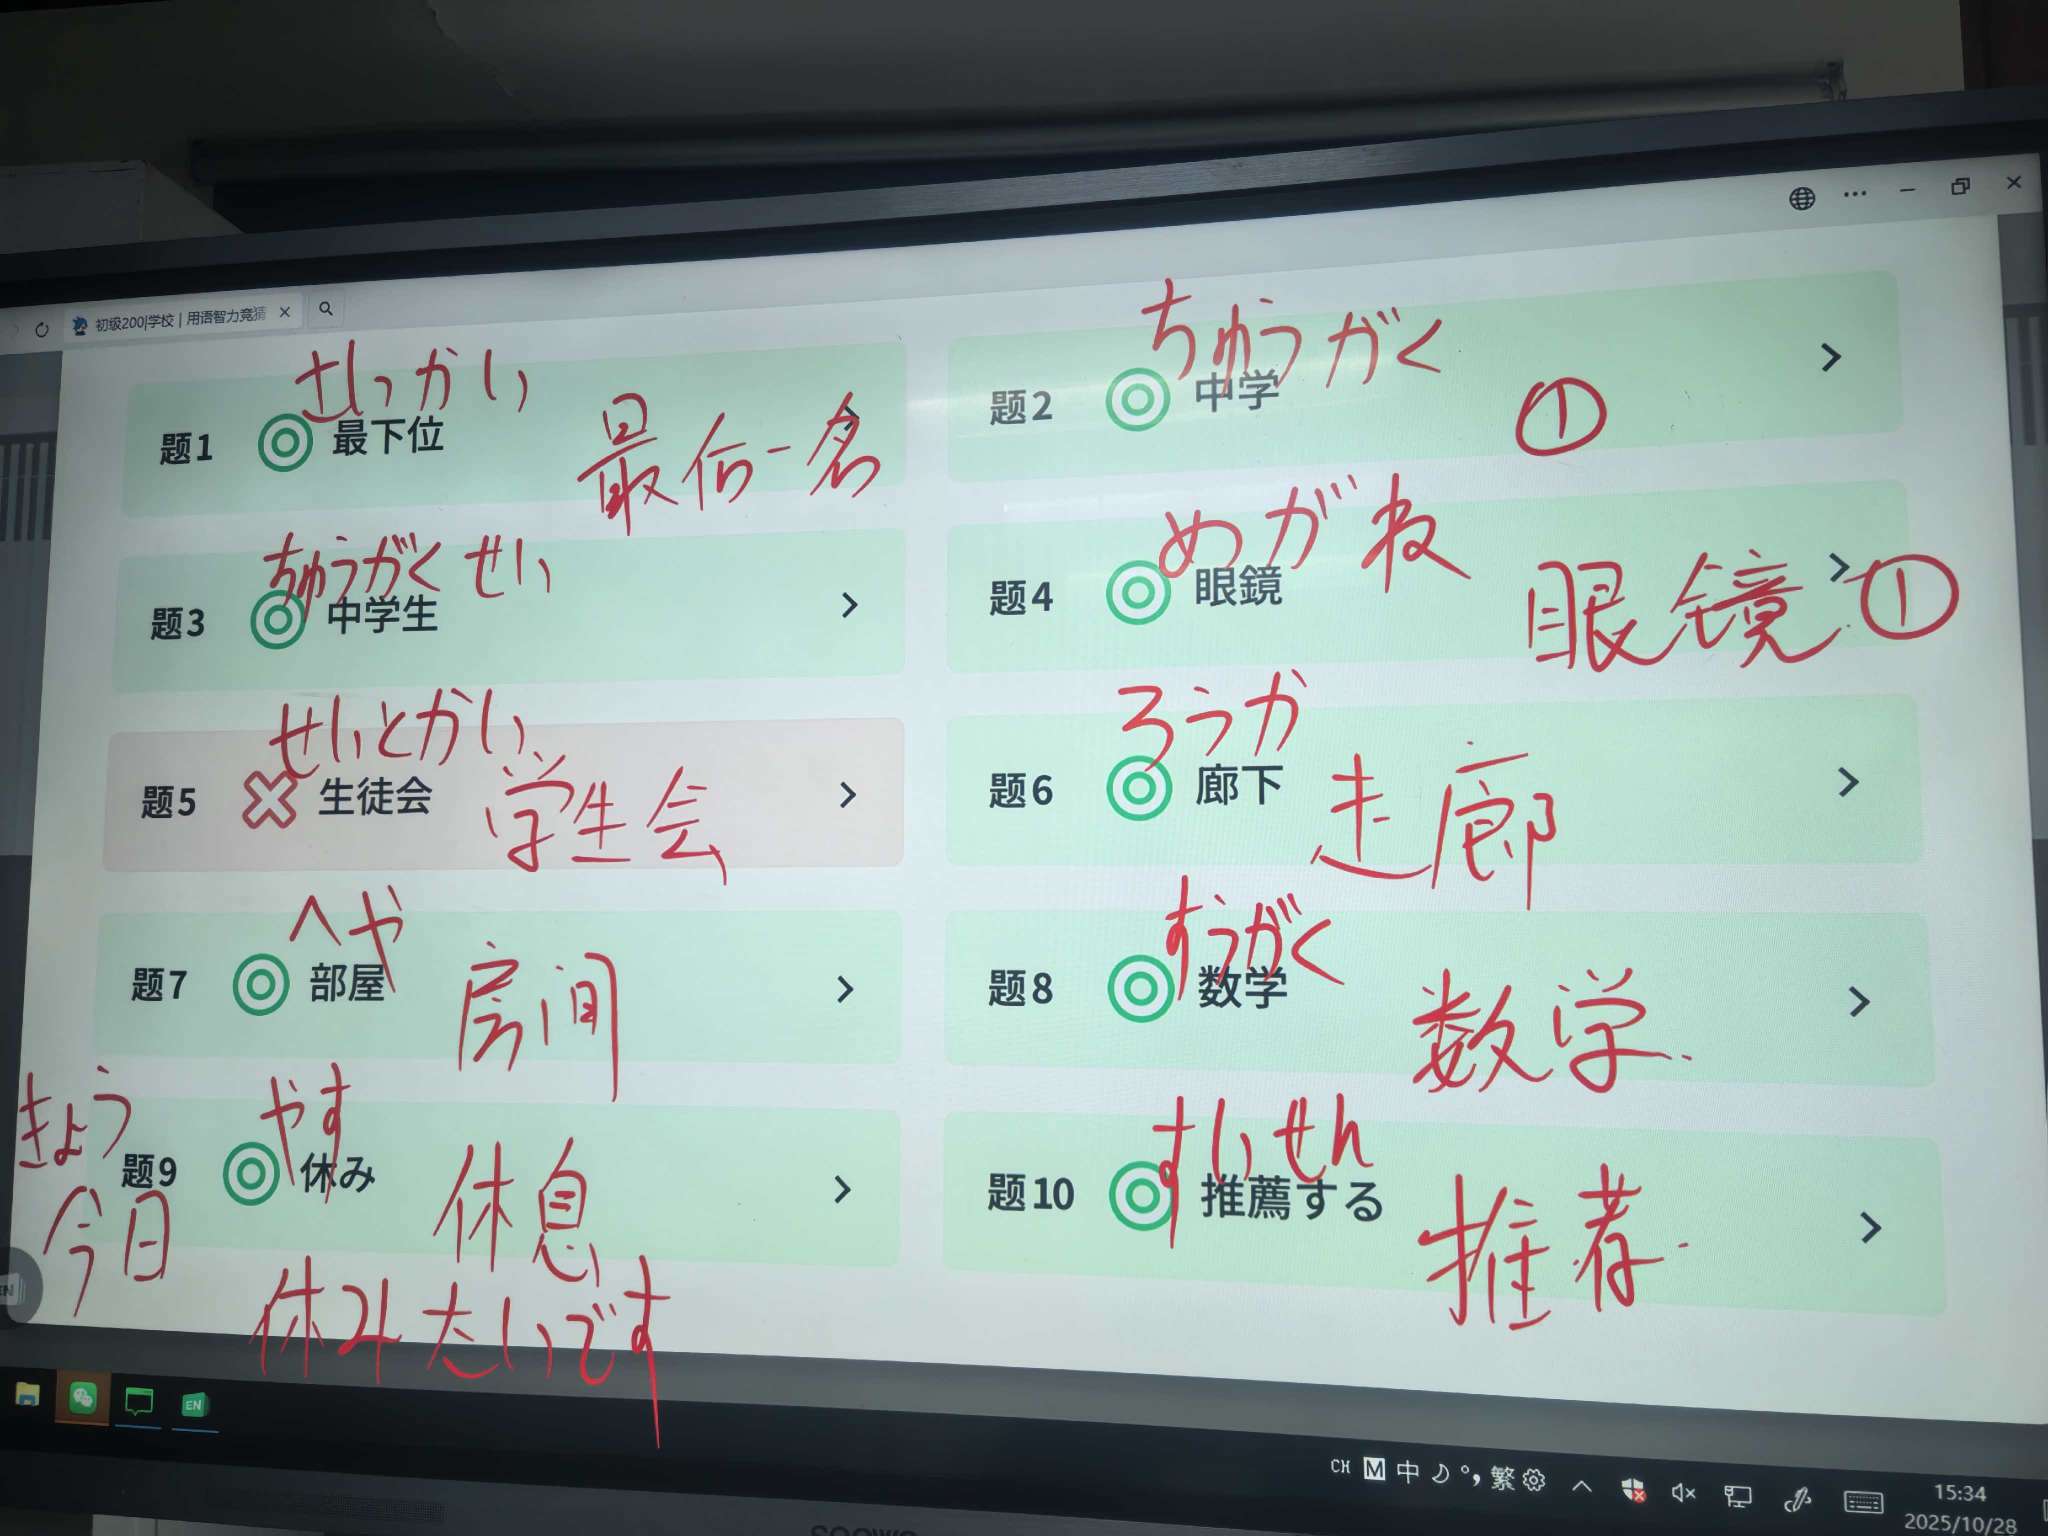 初级200|学校 | 用语智力竞猜
せっかい
题1 最下位
最后一名
ちゅうがく
题2 中学
①
ちゅうがくせい
题3 中学生
めがね
题4 眼鏡
眼镜 ①
せいとかい
题5 生徒会
学生会
ろうか
题6 廊下
走廊
へや
题7 部屋
房间
すうがく
题8 数学
数学
やす
题9 休み
休息
すいせん
题10 推薦する
推荐
きょう
今日
休みたいです
EN
CH M 中 繁
15:34
2025/10/28